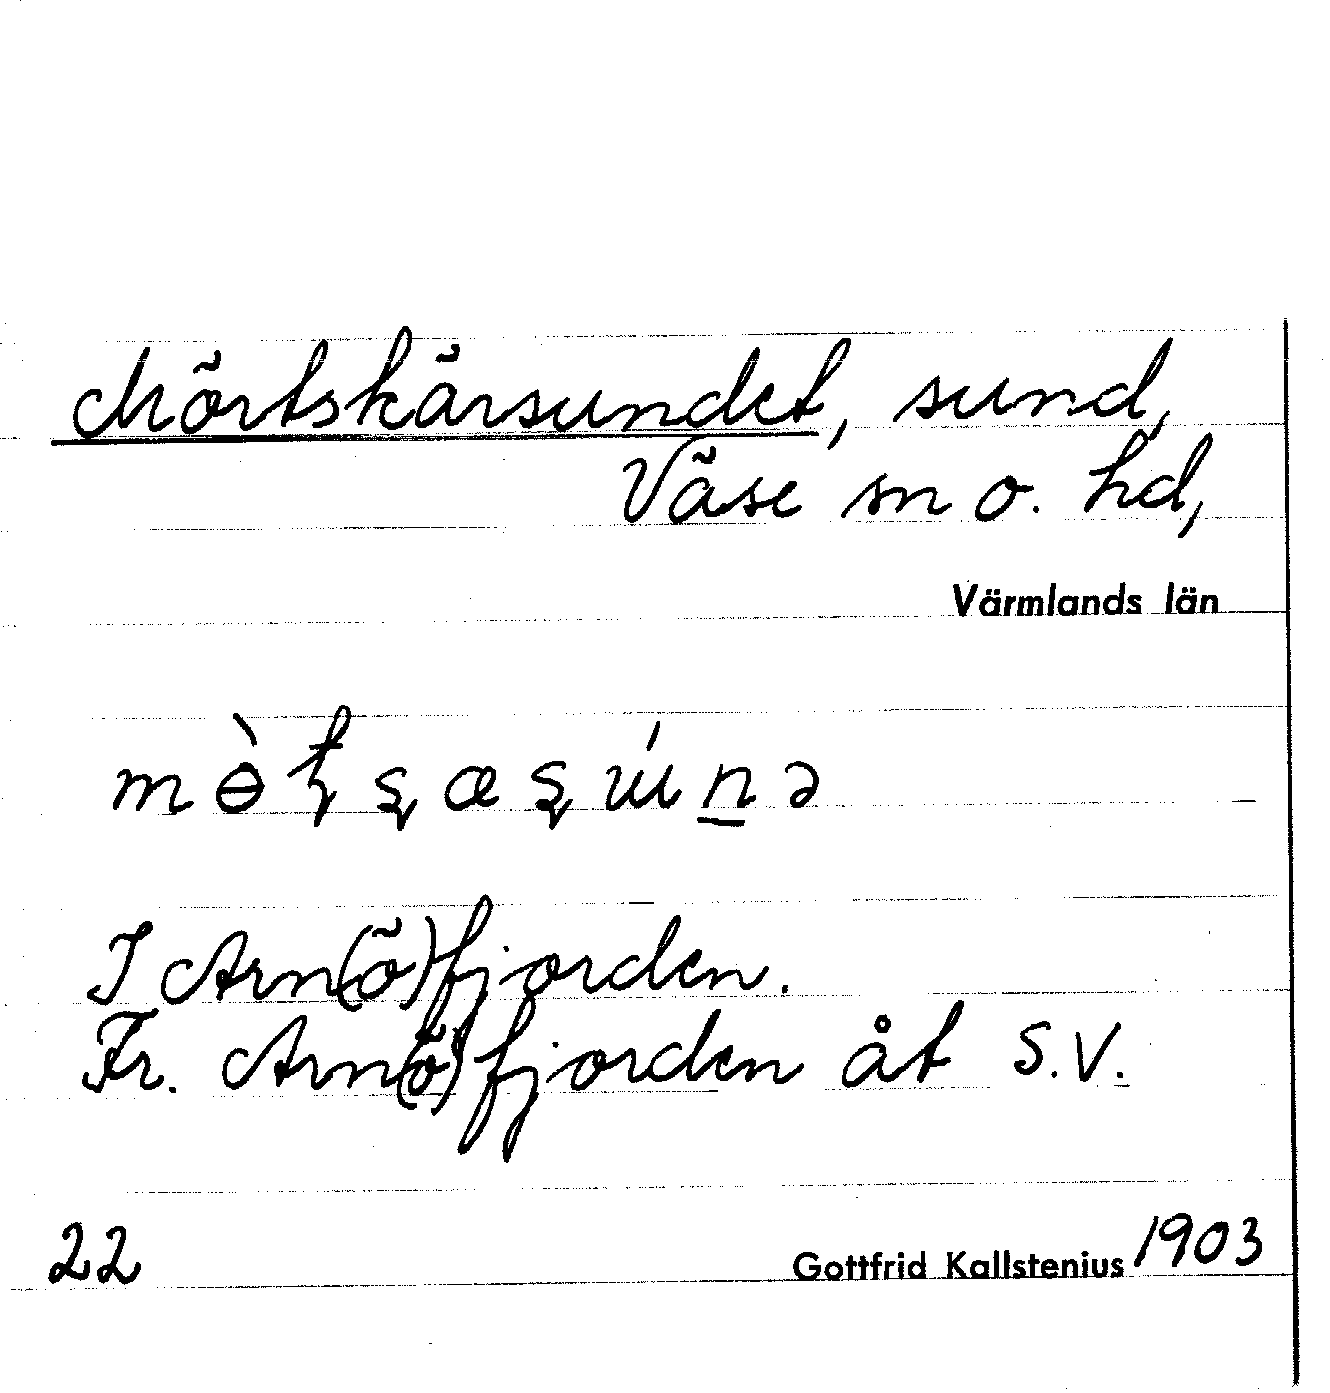 Mörtskärsundet, sund,
Väse sn o. hd,
Värmlands län
mɵ̀ʈʂæʂɯ́n̲ə
I Arn(ö)fjorden.
Fr. Arn(ö)fjorden åt S.V.
22 Gottfrid Kallstenius 1903